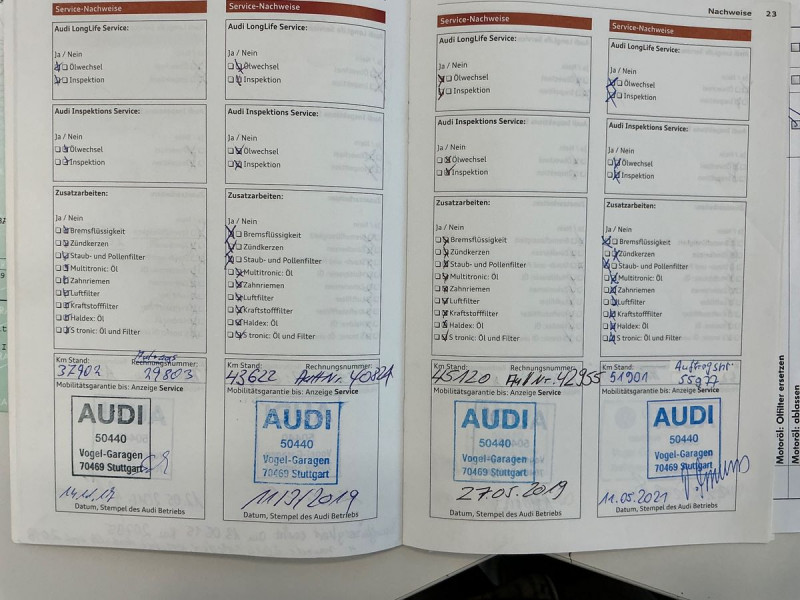 Nachweise 23
Service-Nachweise
Audi LongLife Service:
Ja / Nein
Ölwechsel
Inspektion
Audi Inspektions Service:
Ja / Nein
Ölwechsel
Inspektion
Zusatzarbeiten:
Ja / Nein
Bremsflüssigkeit
Zündkerzen
Staub- und Pollenfilter
Multitronic: Öl
Zahnriemen
Luftfilter
Kraftstofffilter
Haldex: Öl
S tronic: Öl und Filter
Km Stand: Rechnungsnummer:
37903 39803
Mobilitätsgarantie bis: Anzeige Service
AUDI
50440
Vogel-Garagen
70469 Stuttgart
Datum, Stempel des Audi Betriebs
Service-Nachweise
Audi LongLife Service:
Ja / Nein
Ölwechsel
Inspektion
Audi Inspektions Service:
Ja / Nein
Ölwechsel
Inspektion
Zusatzarbeiten:
Ja / Nein
Bremsflüssigkeit
Zündkerzen
Staub- und Pollenfilter
Multitronic: Öl
Zahnriemen
Luftfilter
Kraftstofffilter
Haldex: Öl
S tronic: Öl und Filter
Km Stand: Rechnungsnummer:
43622 Auft Nr. 40821
Mobilitätsgarantie bis: Anzeige Service
AUDI
50440
Vogel-Garagen
70469 Stuttgart
11/3/2019
Datum, Stempel des Audi Betriebs
Service-Nachweise
Audi LongLife Service:
Ja / Nein
Ölwechsel
Inspektion
Audi Inspektions Service:
Ja / Nein
Ölwechsel
Inspektion
Zusatzarbeiten:
Ja / Nein
Bremsflüssigkeit
Zündkerzen
Staub- und Pollenfilter
Multitronic: Öl
Zahnriemen
Luftfilter
Kraftstofffilter
Haldex: Öl
S tronic: Öl und Filter
Km Stand: Rechnungsnummer:
45120 Auft Nr. 42955
Mobilitätsgarantie bis: Anzeige Service
AUDI
50440
Vogel-Garagen
70469 Stuttgart
27.05.2019
Datum, Stempel des Audi Betriebs
Service-Nachweise
Audi LongLife Service:
Ja / Nein
Ölwechsel
Inspektion
Audi Inspektions Service:
Ja / Nein
Ölwechsel
Inspektion
Zusatzarbeiten:
Ja / Nein
Bremsflüssigkeit
Zündkerzen
Staub- und Pollenfilter
Multitronic: Öl
Zahnriemen
Luftfilter
Kraftstofffilter
Haldex: Öl
S tronic: Öl und Filter
Km Stand: Auftragsnr.
51901 55977
Mobilitätsgarantie bis: Anzeige Service
AUDI
50440
Vogel-Garagen
70469 Stuttgart
11.05.2021
Datum, Stempel des Audi Betriebs
Motoröl: Ölfilter ersetzen
Motoröl: ablassen